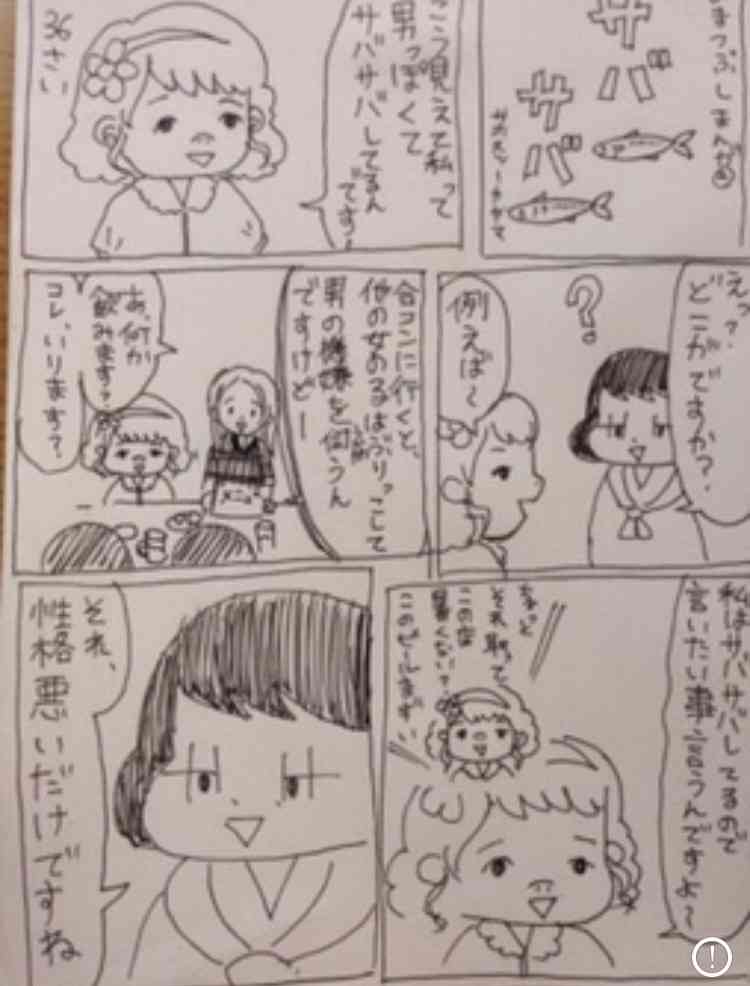 サバ
サバ
こう見えて私って
男っぽくて
サバサバしてるん
です!
36さい
えっ?
どこがですか?
?
例えば〜
合コンに行くと、
他の女の子はぶりっこして
男の機嫌を伺うん
ですけどー
メニュー
あ、何か
飲みます?
コレ、いります?
私はサバサバしてるので
言いたい事言うんですよ〜
ちょっと
それ取って、
この店
暑くない?
このビールまずい
それ、
性格悪いだけですね